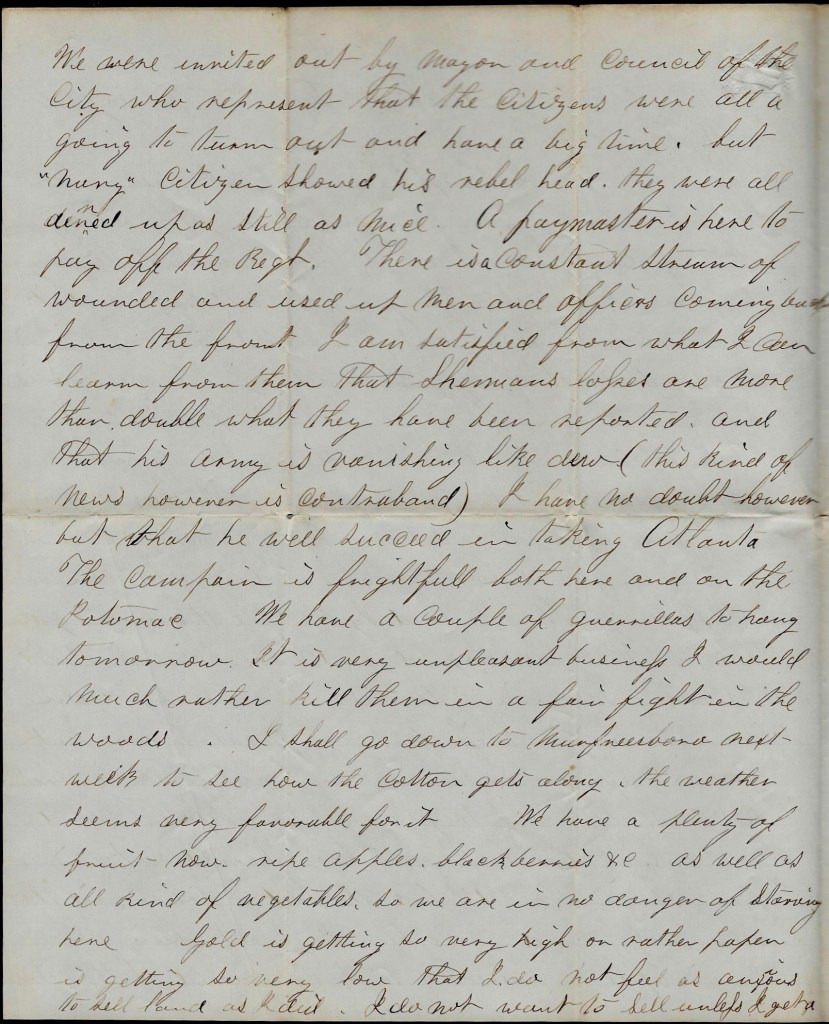 We were invited out by Mayor and Council of the
City who represent that the Citizens were all a
going to turn out and have a big time. but
"nary" Citizen showed his rebel head. they were all
denned up as still as mice. A paymaster is here to
pay off the Regt. There is a Constant stream of
wounded and used up men and officers Coming back
from the front I am satisfied from what I can
learn from them that Shermans losses are more
than double what they have been reported. and
that his army is vanishing like dew (this kind of
news however is Contraband) I have no doubt however
but what he will succeed in taking Atlanta
The Campain is frightfull both here and on the
Potomac We have a Couple of guerrillas to hang
tomorrow. It is very unpleasant business I would
much rather kill them in a fair fight in the
woods. I shall go down to Murfreesboro next
week to see how the Cotton gets along. the weather
seems very favorable for it We have a plenty of
fruit now. ripe apples. blackberries &c as well as
all kind of vegetables. so we are in no danger of starving
here Gold is getting so very high or rather paper
is getting so very low that I do not feel as anxious
to sell land as I did. I do not want to sell unless I get a